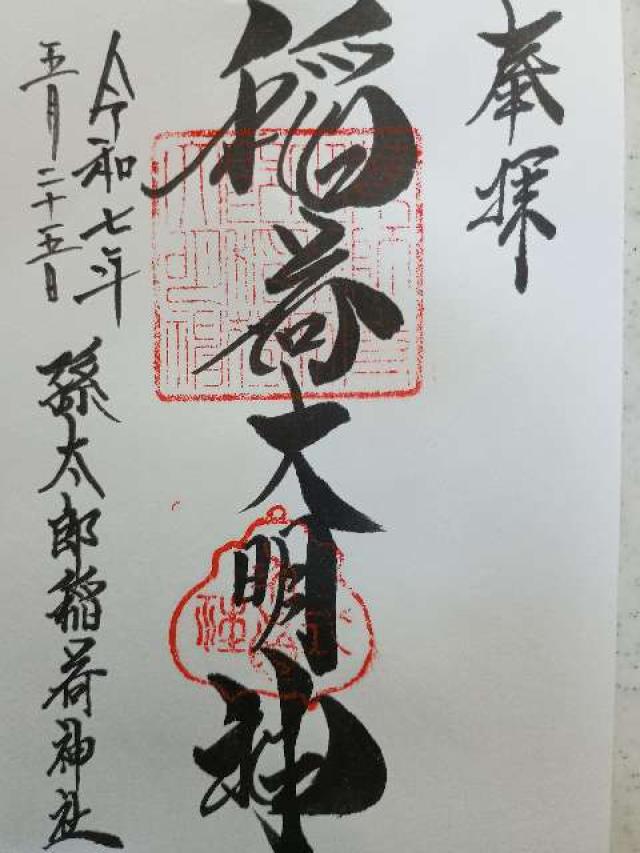 奉拝
稲荷大明神
令和七年
五月二十五日
孫太郎稲荷神社